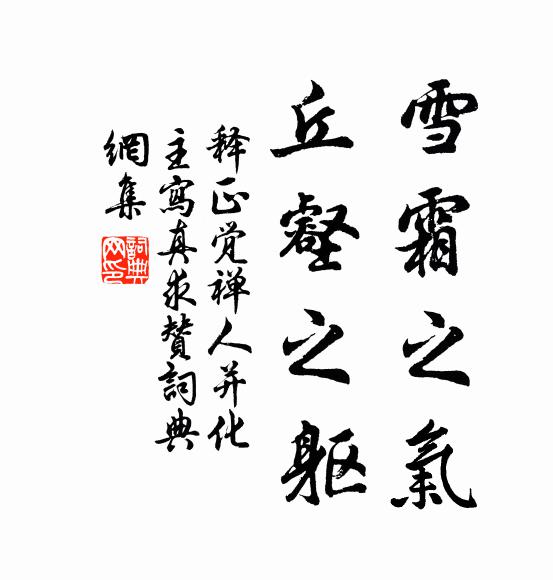 雪霜之氣
丘壑之躯
释正觉禅人并化
主寫真求贊詞典
網集
詞典網印